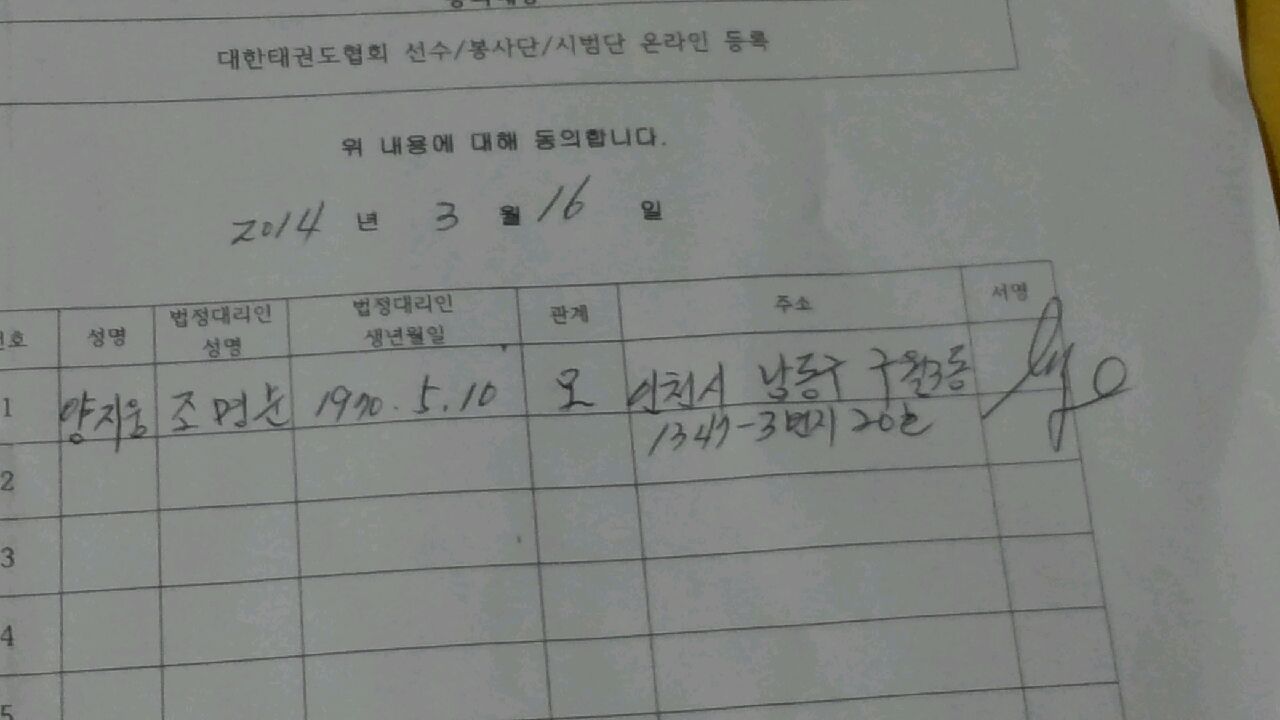 대한태권도협회 선수/봉사단/시범단 온라인 등록
위 내용에 대해 동의합니다.
2014 년 3 월 16 일
성명 법정대리인 성명 법정대리인 생년월일 관계 주소 서명
1 양지웅 조명순 1970. 5. 10 모 인천시 남동구 구월3동
1347-3번지 20호
2
3
4
5